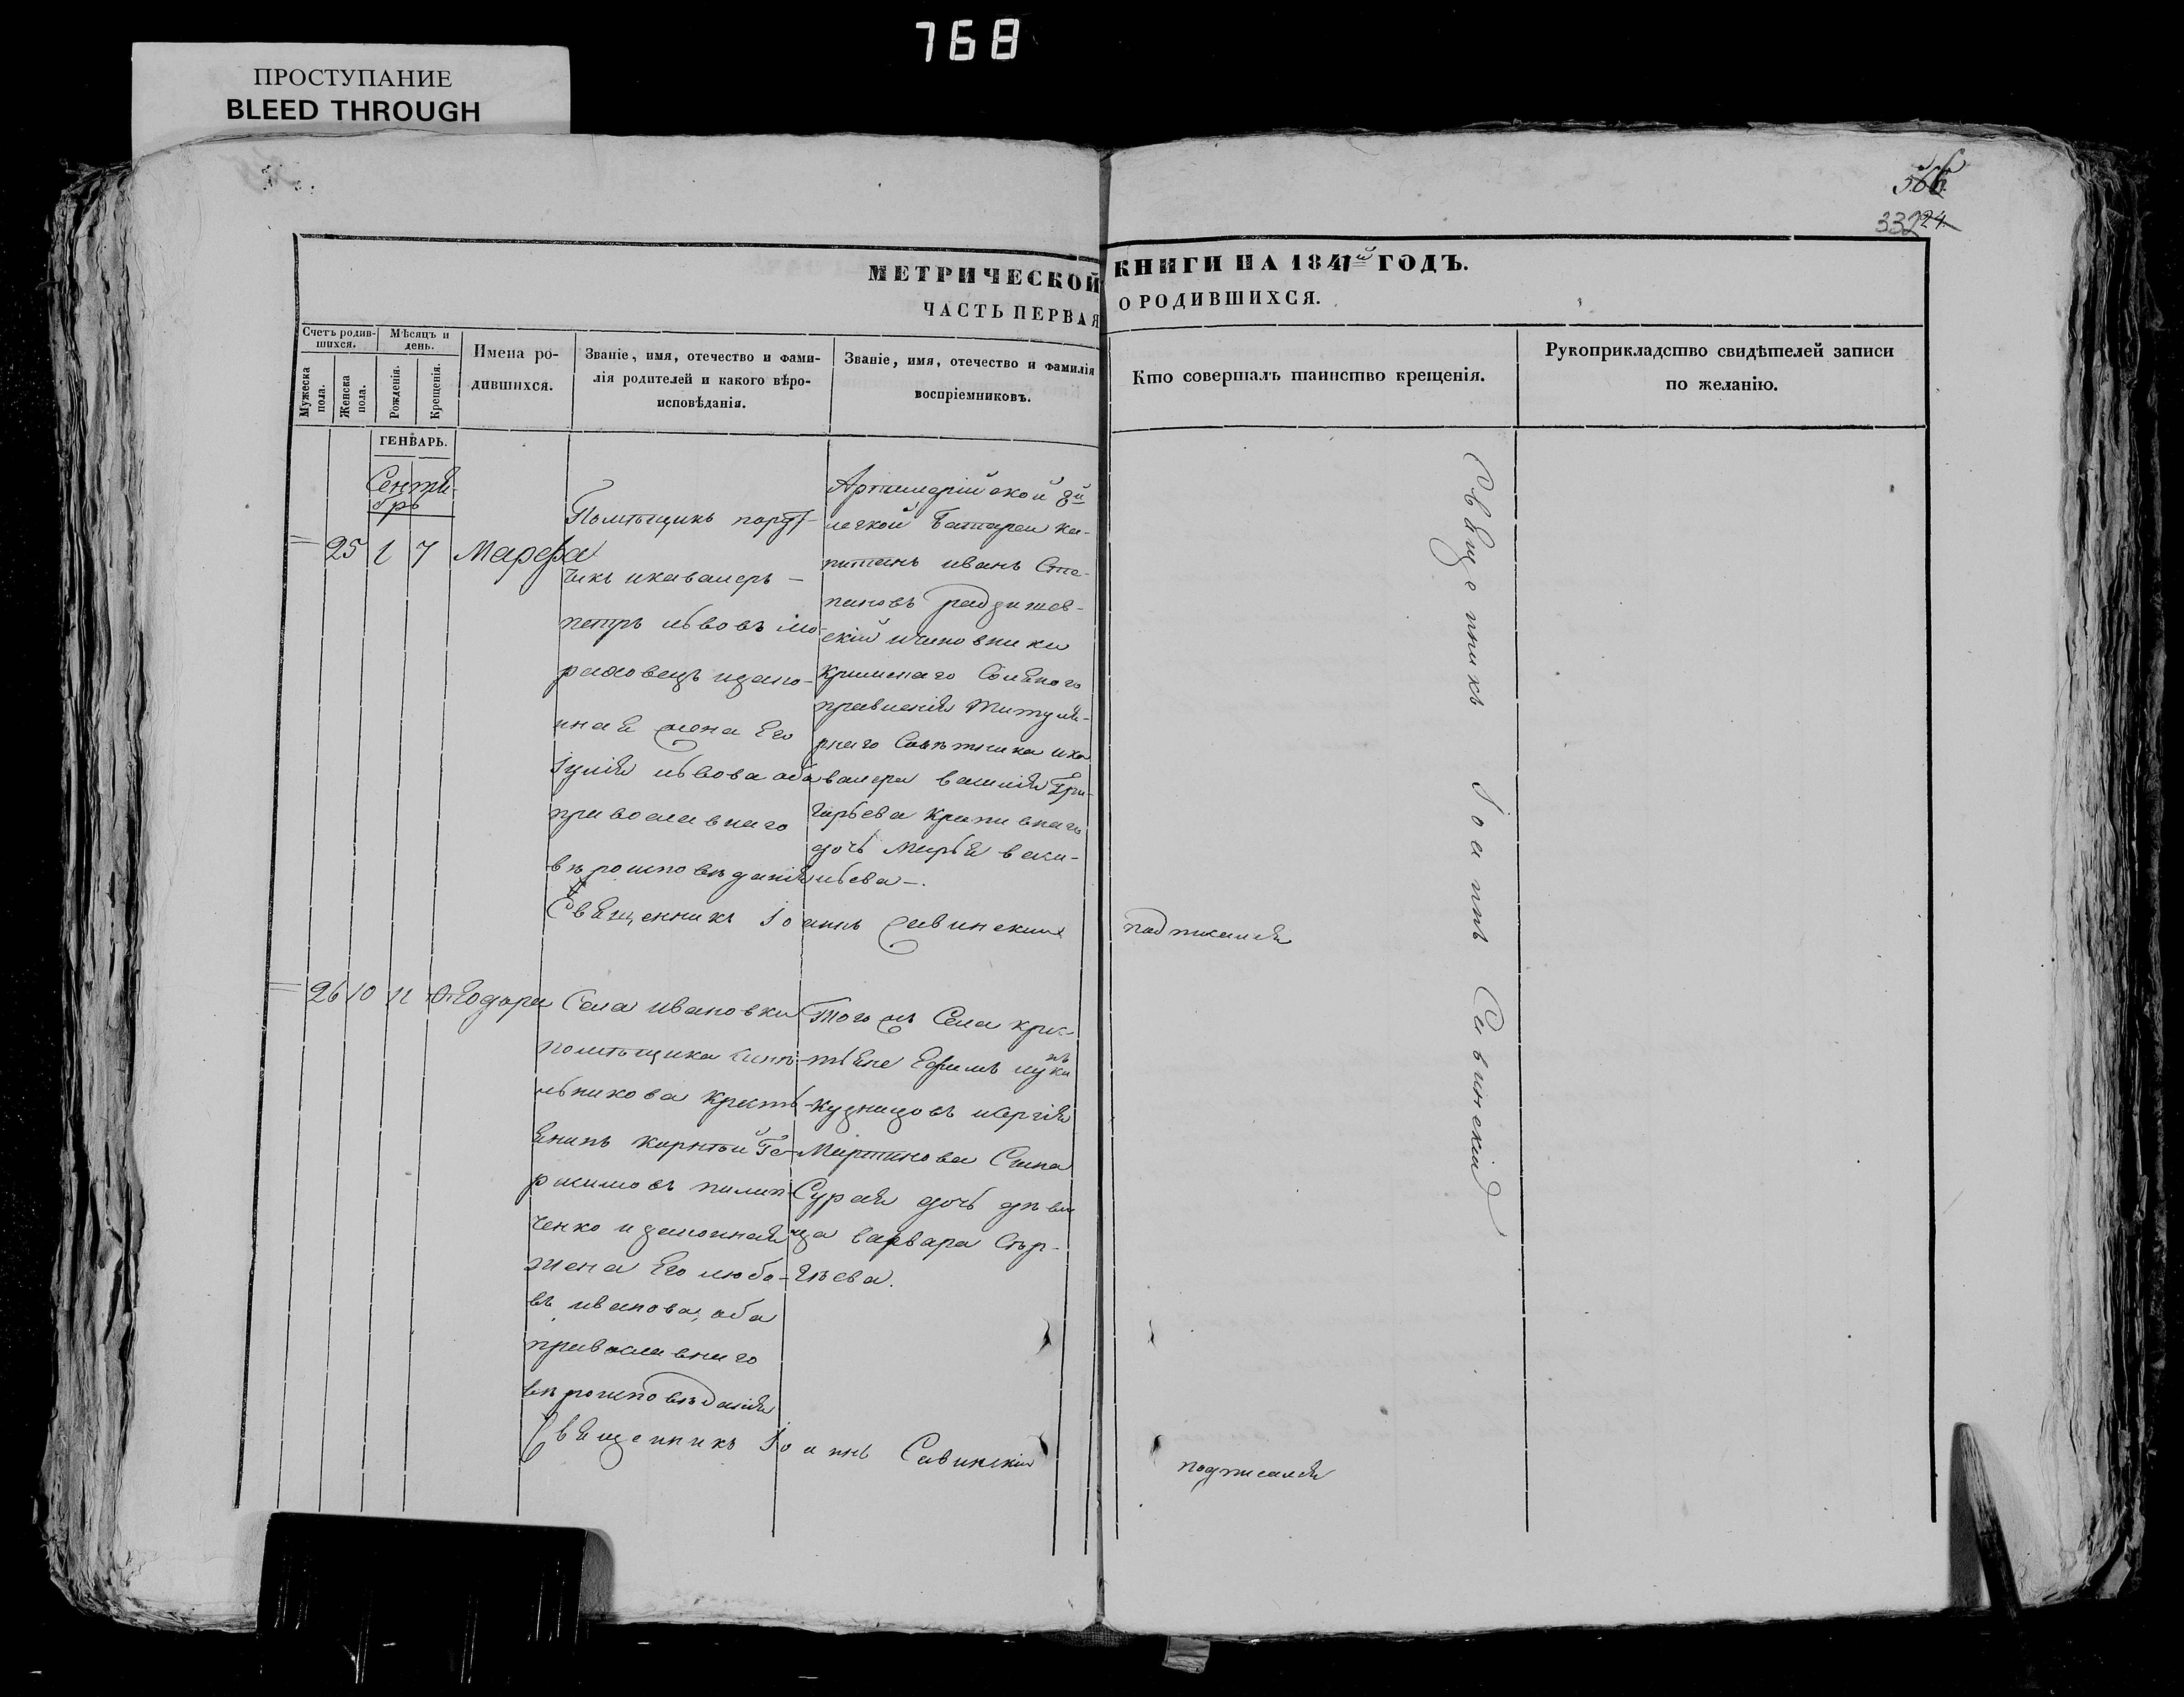 768
ПРОСТУПАНИЕ
BLEED THROUGH
332
24
МЕТРИЧЕСКОЙ КНИГИ НА 1841й ГОДЪ.
ЧАСТЬ ПЕРВАЯ О РОДИВШИХСЯ.
Счетъ родив-
шихся.
Мужеска
пола.
Женска
пола.
Мѣсяцъ и
день.
Рожденія.
Крещенія.
Имена ро-
дившихся.
Званіе, имя, отечество и фами-
лія родителей и какого вѣро-
исповѣданія.
Званіе, имя, отечество и фамилія
воспріемниковъ.
Кто совершалъ таинство крещенія.
Рукоприкладство свидѣтелей записи
по желанію.
ГЕНВАРЬ.
Сентя-
брь
25 1 7 Марфа
Помѣщикъ пору-
чикъ икавалеръ
петръ львовъ мо-
раховецъ изако-
ная жена Его
Іулія львова оба
православнаго
вѣроисповѣданія
Артилерійской 8й
легкой батареи ка-
питанъ иванъ Сте-
пановъ
скій ичиновника
крымскаго Солянаго
правленія Титуля-
рнаго Совѣтника ика
валера василія Гри-
горьева
дочь Марья васи-
льева.
Священникъ Іоаннъ Савинскій подписался
26 10 11 Ѳеодора
Села ивановки
помѣщика
крестья-
енинъ корнѣй Ге-
расимовъ пилип-
ченко изаконная
жена Его любо-
вь иванова, оба
православнаго
вѣроисповѣданія
Того жъ Села крес-
тьяне Ефимъ лукинъ
кузнецовъ иСергія
Мартинова Сина
дочь дѣви
ца варвара Сер-
гѣева.
Священникъ Іоаннъ Савинскій подписался
Священникъ Іоаннъ Савинскій